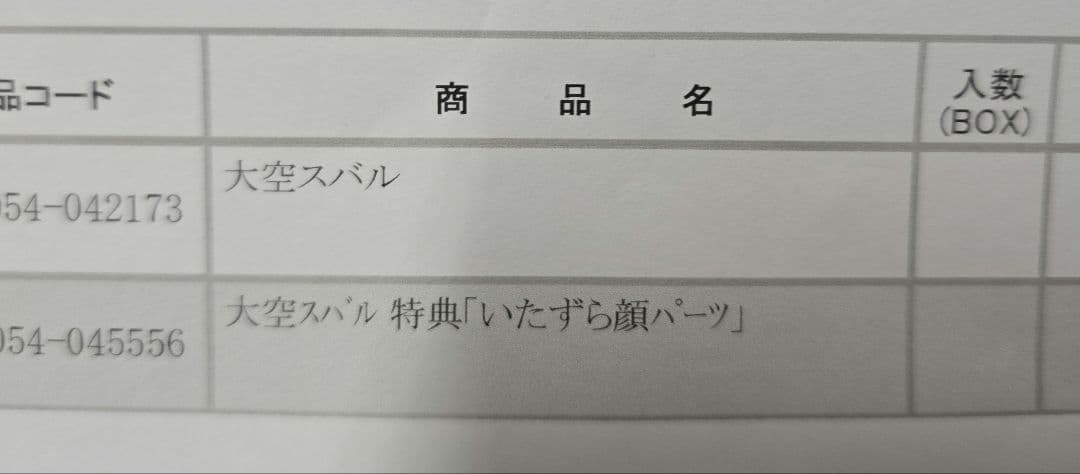 品コード 商品名 入数
(BOX)
054-042173 大空スバル
054-045556 大空スバル 特典「いたずら顔パーツ」